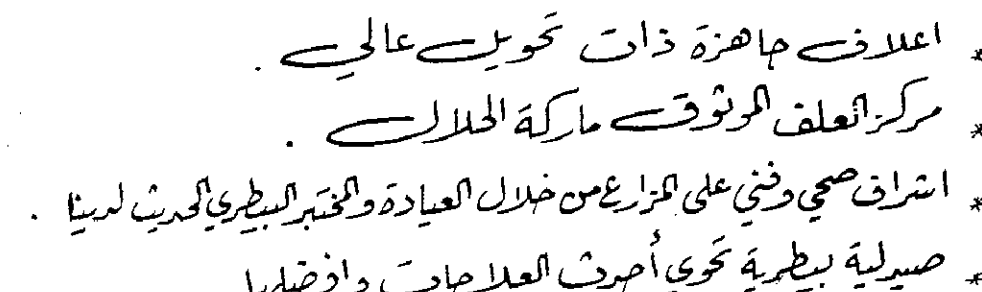 * اعلاف جاهزة ذات تحويل عالي .
* مركز العلف الموثوق ماركة الحلال .
* اشراف صحي وفني على المزارع من خلال العيادة والمختبر البيطري الحديث لدينا .
* صيدلية بيطرية تحوي أحدث العلاجات وافضلها